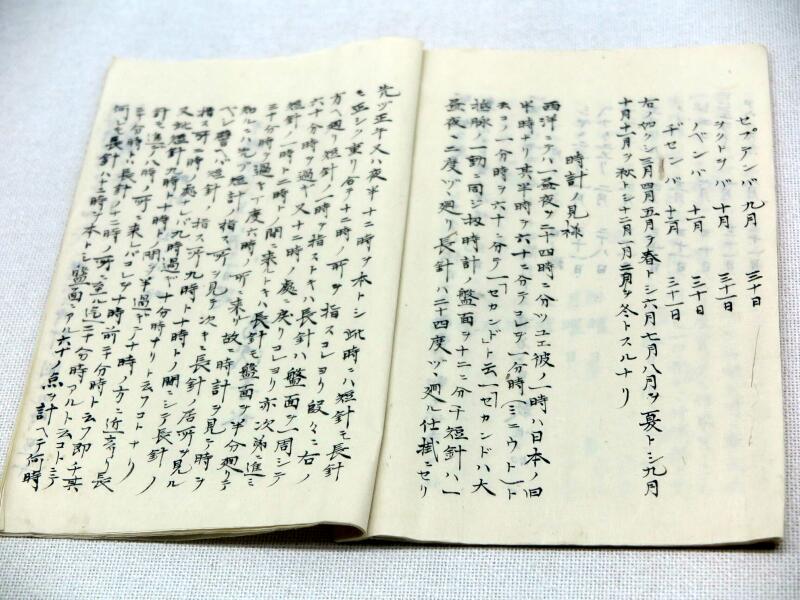 セプテンバ 九月 三十日
ヲクトヲバ 十月 三十一日
ノベンバ 十一月 三十日
デセンバ 十二月 三十一日
右ノ如クシ三月四月五月ヲ春トシ六月七月八月ヲ夏トシ九月
十月十一月ヲ秋トシ十二月一月二月ヲ冬トスルナリ
時計ノ見様
西洋ニテハ一昼夜ヲ二十四時ニ分ツユエ彼ノ一時ハ日本ノ旧
半時ナリ其半時ヲ六十ニ分テコレヲ一分時(ミニウト)ト
云コノ一分時ヲ六十ニ分テ「一セカンド」ト云「一セカンドハ大
抵脉ノ一動ニ同ジ扨時計ノ盤面ヲ十二ニ分チ短針ハ一
昼夜ニ二度ヅヽ廻リ長針ハ二十四度ヅヽ廻ル仕掛ニセリ
先ヅ正午又ハ夜半十二時ヲ本トシ此時ニハ短針モ長針
モ正シク重リ合テ十二時ノ所ヲ指スコレヨリ段々ニ右ノ
方ヘ廻リ短針ノ一時ヲ指ストキハ長針ハ盤面ヲ一周シテ
六十分時ヲ過ギ又十二時ノ処ニ戻リコレヨリ亦次第ニ進ミ
短針ノ一時ト二時トノ間ニ来ルトキハ長針モ盤面ヲ半分廻リテ
三十分時ヲ過ギ丁度六時ノ所ニ来ル故ニ時計ヲ見テ時ヲ
知ルニハ先ヅ短針ノ指ス所ヲ見次ギニ長針ノ居所ヲ見ル
ベシ譬ヘバ短針ノ指ス所九時ト十時トノ間ニシテ長針ノ
指ス所二時ノ処ナレバ九時過ギ十分時ナリト云フコトナリ
又此短針九時ト十時トノ間ヲ半過ギテ十時ノ方ニ近寄リ長
針モ進テ八時ノ所ニ来レバコレヲ十時前二十分時ト云フ即チ其
二十分時ハ長針ノ十二時ノ所ニ至ル迄二十分時アルト云コトニテ
何レモ長針ハ十二時ヲ本トシ盤面ニアル六十ノ点ヲ計ヘテ何時